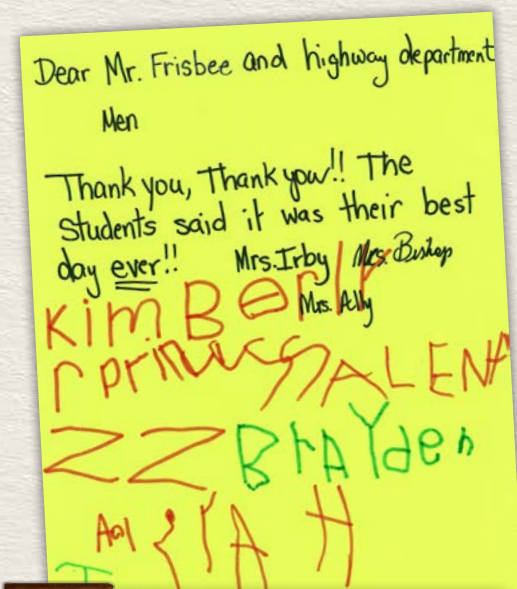 Dear Mr. Frisbee and highway department
Men
Thank you, Thank you!! The
Students said it was their best
day ever!! Mrs. Irby Mrs. Bishop
Mrs. Ally
KimBerly
SALENA
ZZ BrAYden